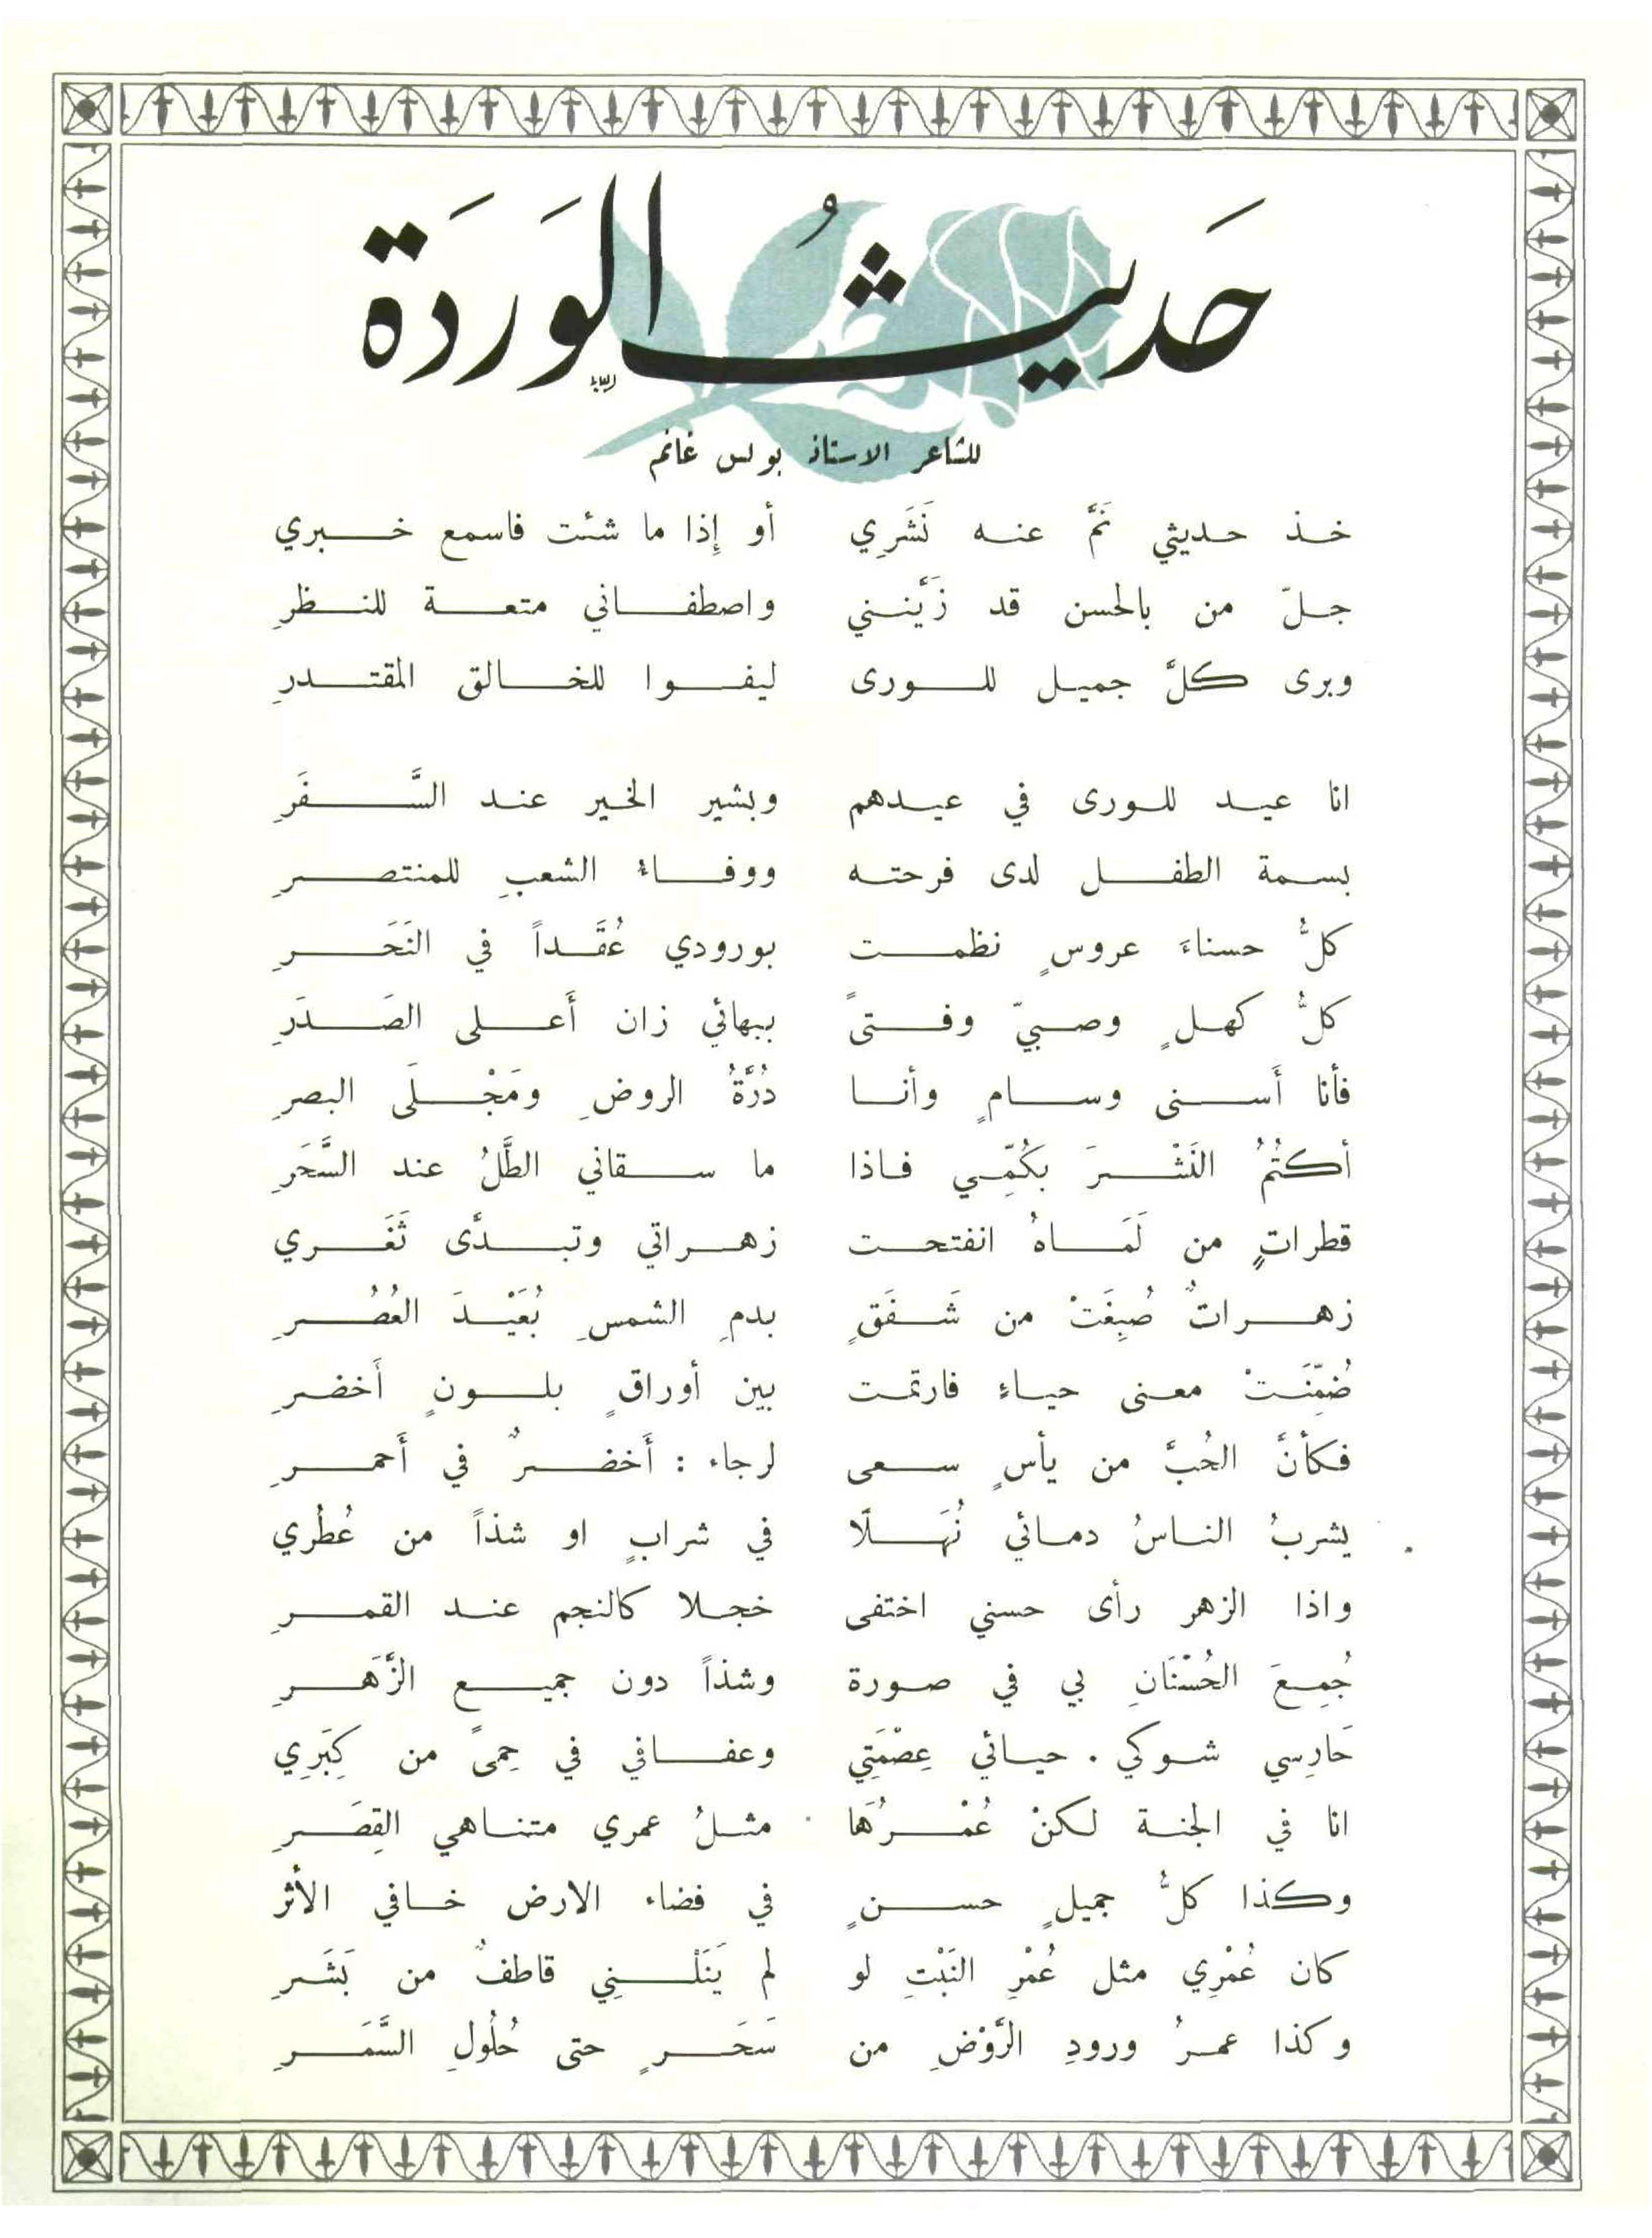 حَديثُ الوَردَة
للشاعر الاستاذ بولس غانم
خذ حديثي نَمَّ عنه نَشَرِي أو إِذا ما شئت فاسمع خبري
جلّ من بالحسن قد زَيَّنني واصطفاني متعة للنظرِ
وبرى كلَّ جميل للورى ليفوا للخالق المقتدرِ
انا عيد للورى في عيدهم وبشير الخير عند السَّفَرِ
بسمة الطفل لدى فرحته ووفاءُ الشعبِ للمنتصرِ
كلُّ حسناءَ عروسٍ نظمت بورودي عُقَداً في النَحَرِ
كلُّ كهلٍ وصبيّ وفتىً ببهائي زان أَعلى الصَدَرِ
فأنا أَسنى وسامٍ وأنا دُرَّةُ الروضِ ومَجْلَى البصرِ
أكتُمُ النَشْرَ بكُمِّي فاذا ما سقاني الطَّلُ عند السَّحَرِ
قطراتٍ من لَمَاهُ انفتحت زهراتي وتبدَّى ثَغَري
زهراتٌ صُبِغَتْ من شَفَقٍ بدمِ الشمسِ بُعَيْدَ العُصُرِ
ضُمِّنَتْ معنى حياءٍ فارتمت بين أوراقٍ بلونٍ أَخضرِ
فكأنَّ الحُبَّ من يأسٍ سعى لرجاء : أَخضرٌ في أَحمرِ
يشربُ الناسُ دمائي نُهَلًا في شرابٍ او شذاً من عُطُري
واذا الزهر رأى حسني اختفى خجلا كالنجم عند القمرِ
جُمِعَ الحُسْنَانِ بي في صورة وشذاً دون جميع الزَّهَرِ
حَارِسي شوكي . حيائي عِصْمَتِي وعفافي في حِمىً من كِبَرِي
انا في الجنة لكنْ عُمْرُهَا مثلُ عمري متناهي القِصَرِ
وكذا كلُّ جميلٍ حسنٍ في فضاء الارض خافي الأثر
كان عُمْرِي مثل عُمْرِ النَبْتِ لو لم يَنَلْنِي قاطفٌ من بَشَرِ
وكذا عمرُ ورودِ الرَّوْضِ من سَحَرٍ حتى حُلُولِ السَّمَرِ